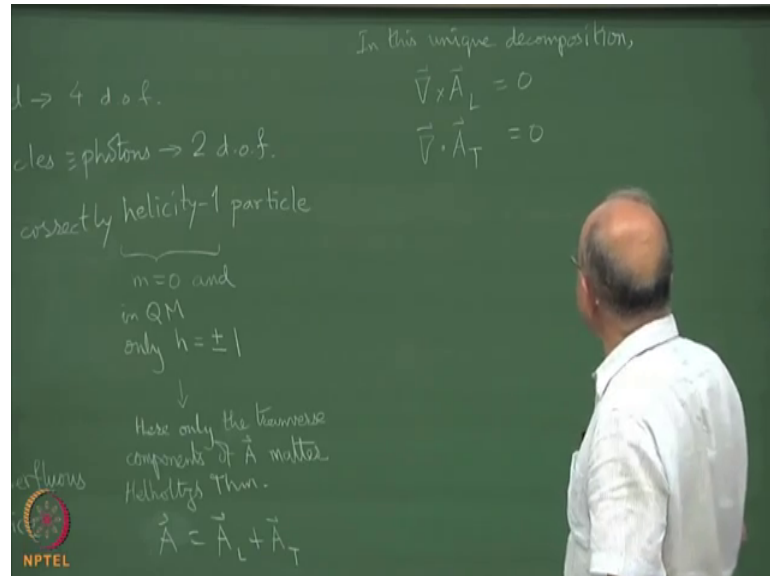 d → 4 d.o.f.
cles ≡ photons → 2 d.o.f.
correctly helicity-1 particle
m=0 and
in QM
only h = ± 1
↓
Here only the transverse
components of A⃗ matter
Helholtzs Thm.
A⃗ = A⃗_L + A⃗_T
erfluous
In this unique decomposition,
∇⃗ × A⃗_L = 0
∇⃗ · A⃗_T = 0
NPTEL